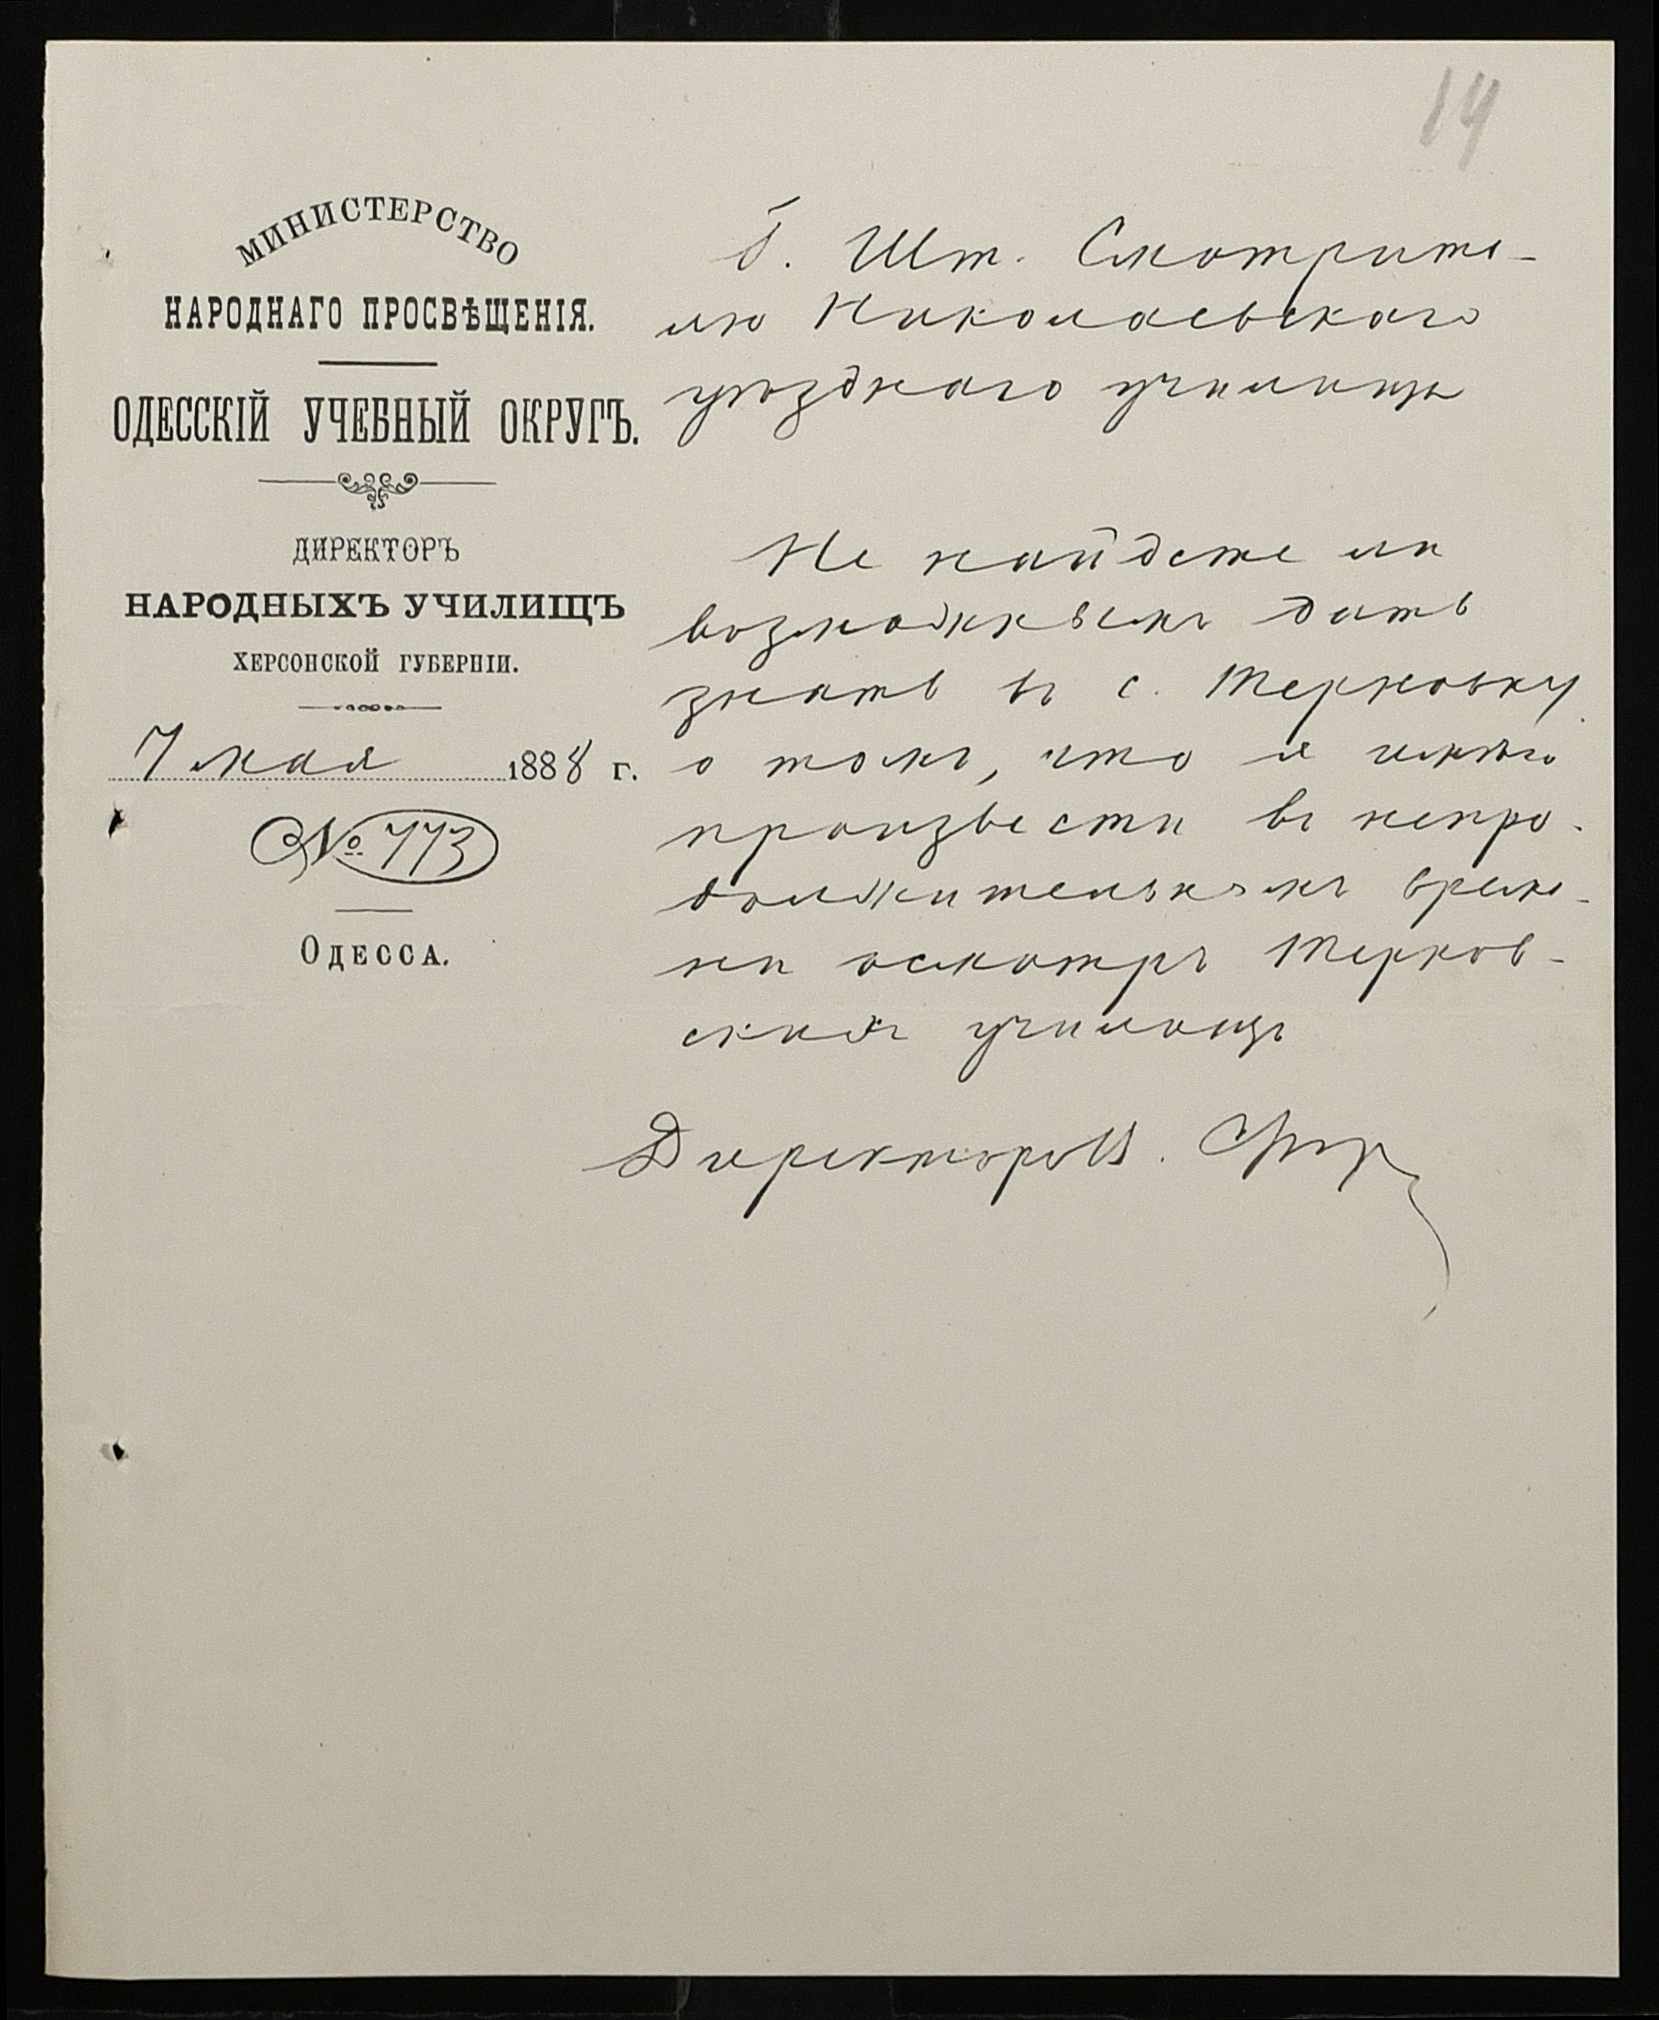 14
МИНИСТЕРСТВО
НАРОДНАГО ПРОСВѢЩЕНІЯ.
ОДЕССКІЙ УЧЕБНЫЙ ОКРУГЪ.
ДИРЕКТОРЪ
НАРОДНЫХЪ УЧИЛИЩЪ
ХЕРСОНСКОЙ ГУБЕРНІИ.
7 мая 1888 г.
№ 773
ОДЕССА.
Г. Шт. Смотрите-
лю Николаевскаго
уѣзднаго училища
Не найдете ли
возможнымъ дать
знать въ с. Терновку
о томъ, что я имѣю
произвести въ непро-
должительномъ време-
ни осмотръ Тернов-
скихъ училищъ
Директоръ